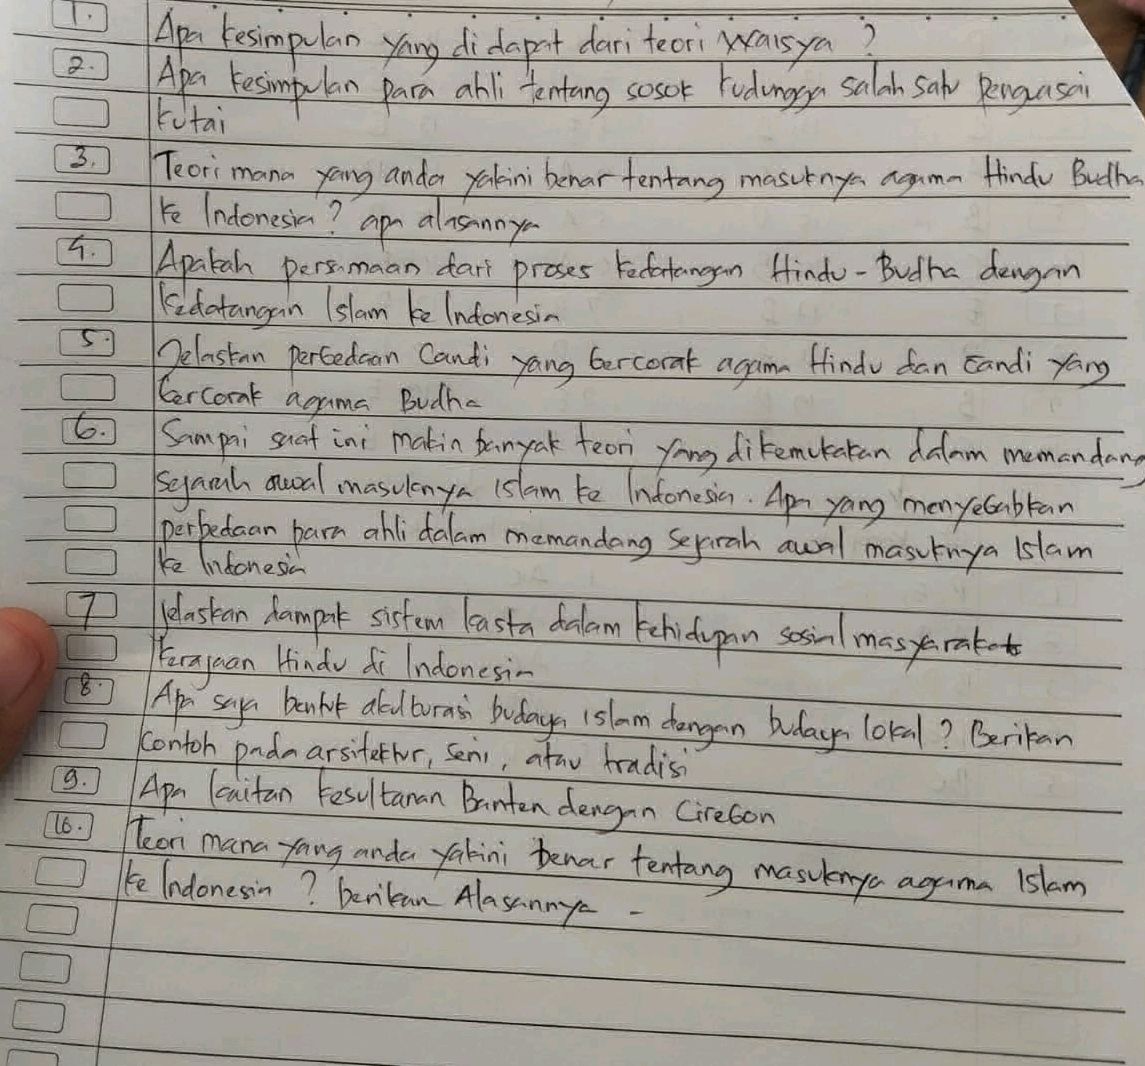 1. Apa kesimpulan yang di dapat dari teori Waisya ?
2. Apa kesimpulan para ahli tentang sosok kudungga salah satu Penguasai
kutai
3. Teori mana yang anda yakini benar tentang masuknya agama Hindu Budha
ke Indonesia ? apa alasannya
4. Apakah persamaan dari proses kedatangan Hindu - Budha dengan
kedatangan Islam ke Indonesia
5. Jelaskan perbedaan Candi yang bercorak agama Hindu dan candi yang
bercorak agama Budha
6. Sampai saat ini makin banyak teori yang dikemukakan dalam memandang
sejarah awal masuknya Islam ke Indonesia. Apa yang menyebabkan
perbedaan para ahli dalam memandang sejarah awal masuknya Islam
ke Indonesia
7 Jelaskan dampak sistem kasta dalam kehidupan sosial masyarakat
kerajaan Hindu di Indonesia
8. Apa saja bentuk akulturasi budaya islam dengan budaya lokal ? Berikan
contoh pada arsitektur, seni, atau tradisi
9. Apa kaitan kesultanan Banten dengan Cirebon
10. Teori mana yang anda yakini benar tentang masuknya agama Islam
ke Indonesia ? berikan Alasannya -